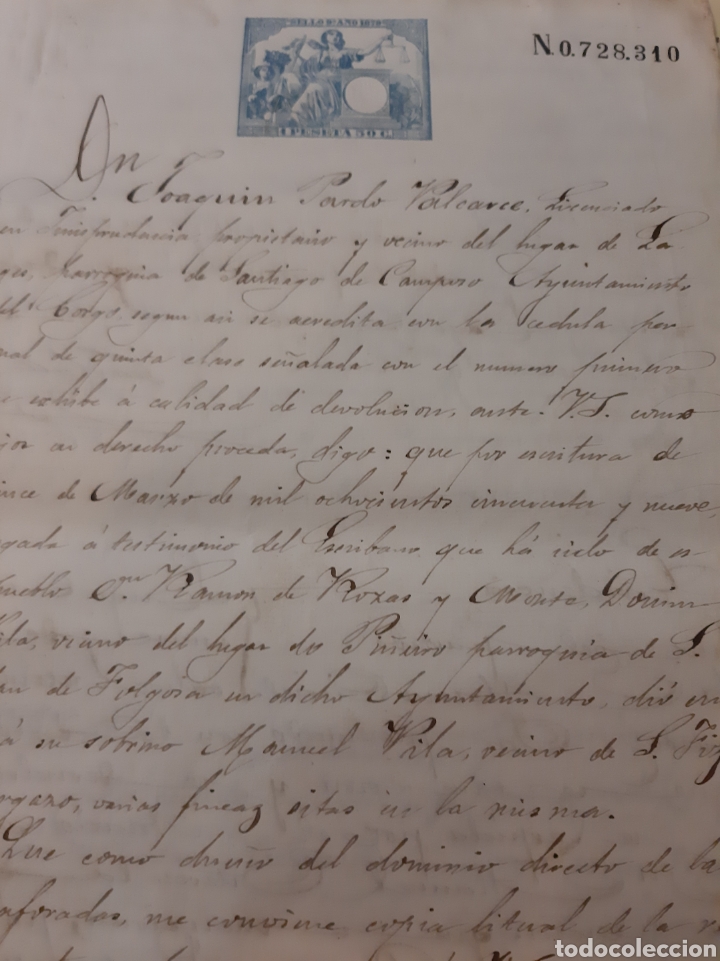 SELLO 9º AÑO 1879
N.0.728.310
1 PESETA 50 Cs
Dn
Joaquin Pardo Valcarce, Licenciado
en Jurisprudencia, propietario y vecino del lugar de La-
ges, parroquia de Santiago de Campeso Ayuntamiento
del Corgo, segun asi se acredita con la cedula per-
nal de quinta clase señalada con el numero primero
e exhibe á calidad de devolucion, ante V.S. como
jor en derecho proceda, digo: que por escritura de
ince de Marzo de mil ochocientos cincuenta y nueve,
gada á testimonio del Escribano que há sido de es
pueblo Dn Ramon de Rozas y Monte, Domin
Vila, vecino del lugar do Piñeiro parroquia de S.
de Folgosa en dicho Ayuntamiento, dió en
á su sobrino Manuel Vila, vecino de S. Fiz
rgazo, varias fincas sitas en la misma.
Que como dueño del dominio directo de la
aforadas, me conviene copia literal de la
todocoleccion